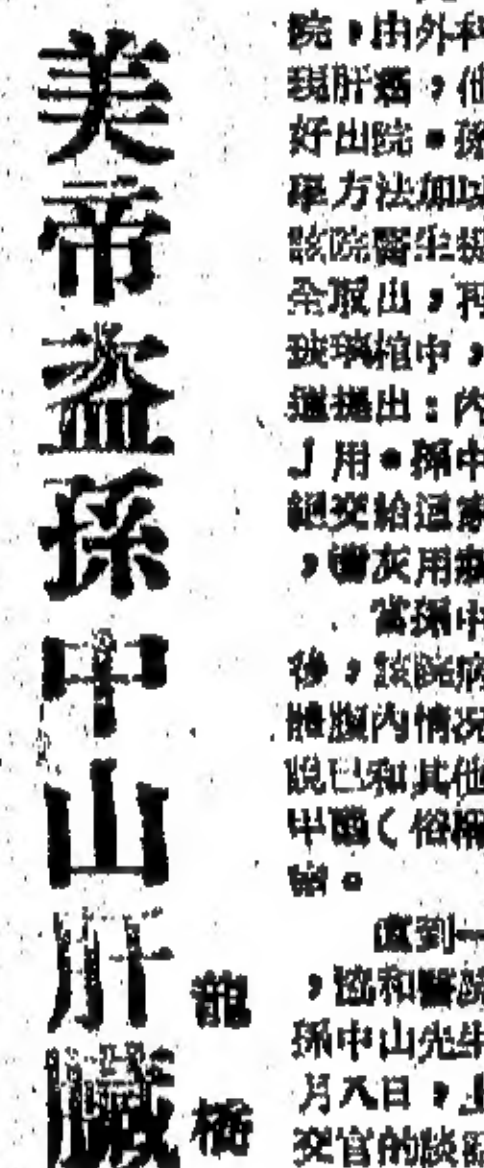 美帝盜孫中山肝臟
龍 栖
院,由外科
現肝癌,他
好出院。孫
單方法加以
該院醫生把
全取出,再
玻璃棺中,
道提出:內
」用。孫中
絕交給這家
,灰用
當孫中
後,該院病
體腹內情況
說已和其他
中(俗
。
直到一
,協和醫院
孫中山先生
月八日,上
交官的談話